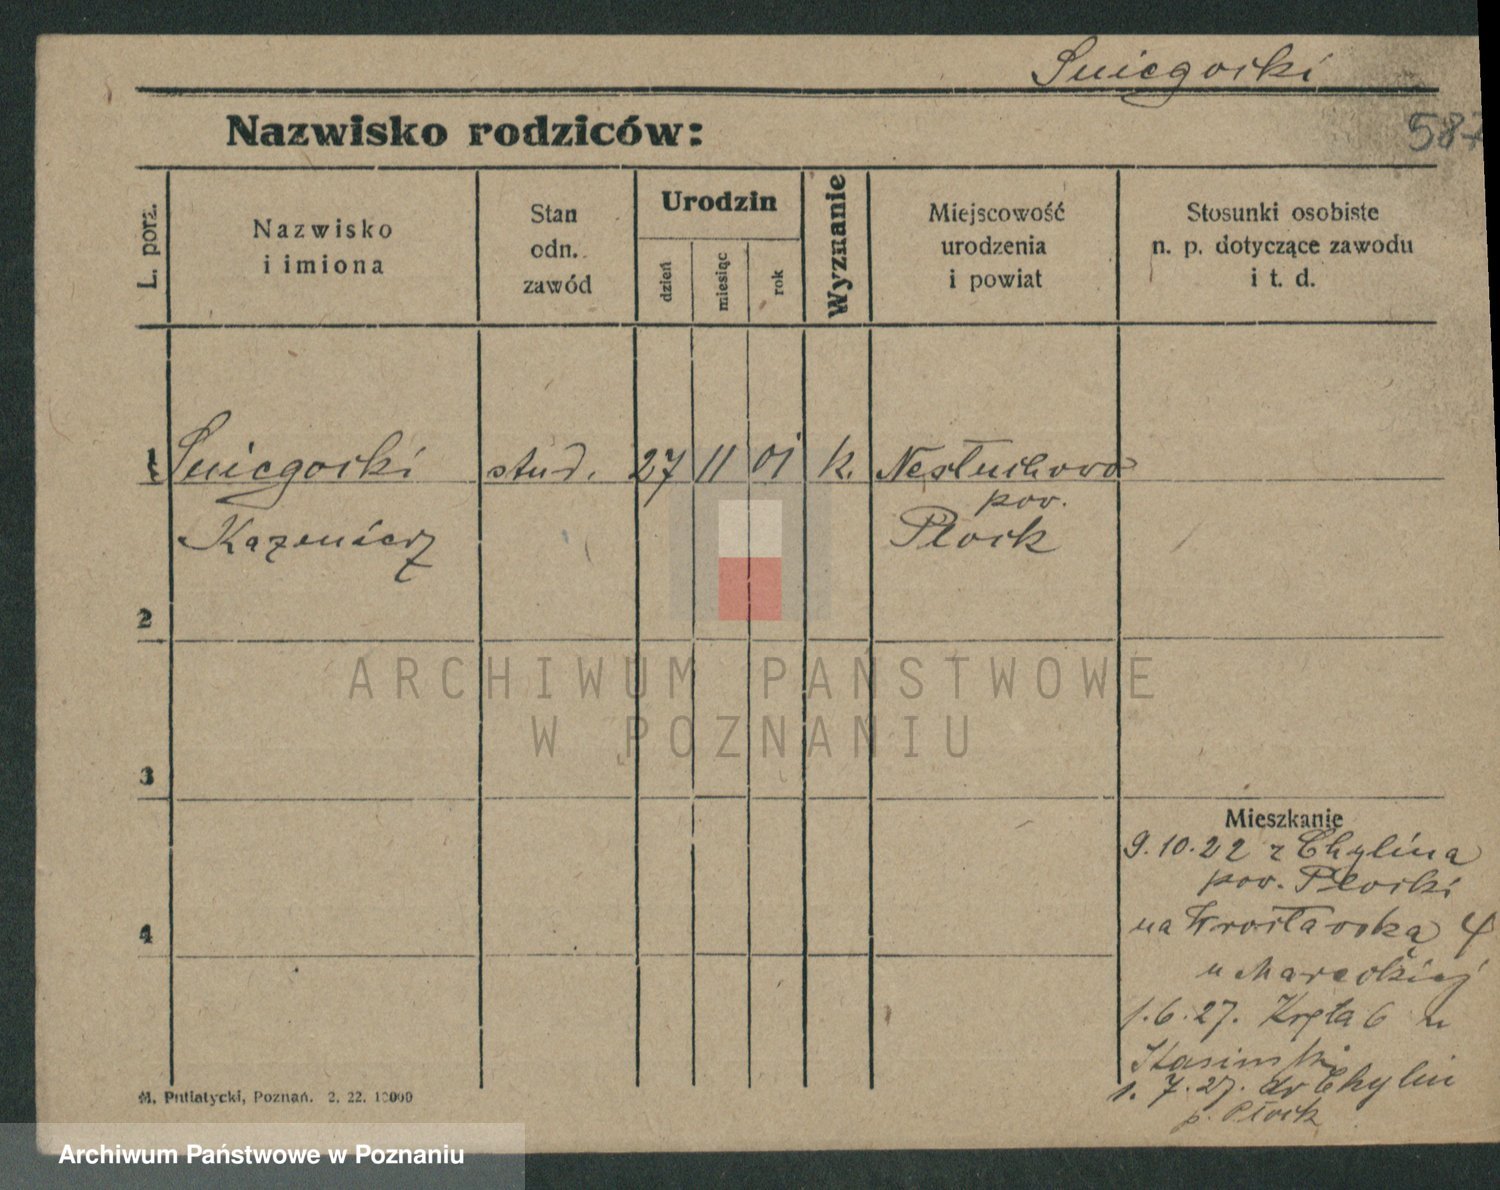 Sniegocki
587
Nazwisko rodziców:
L. porz.
Nazwisko
i imiona
Stan
odn.
zawód
Urodzin
dzień
miesiąc
rok
Wyznanie
Miejscowość
urodzenia
i powiat
Stosunki osobiste
n. p. dotyczące zawodu
i t. d.
1 Sniegocki stud. 27 11 01 k. Niesłuchowo
pow.
Kazimierz Płock
2
3
4
Mieszkanie
9.10.22 z Chylina
pow. Płocki
na Wrocławską 4
u Mareckiej
1.6.27. Kręta 6 u
1.7.27. do Chylin
p. Płock
M. Putiatycki, Poznań. 2. 22. 10000
ARCHIWUM PAŃSTWOWE
W POZNANIU
Archiwum Państwowe w Poznaniu